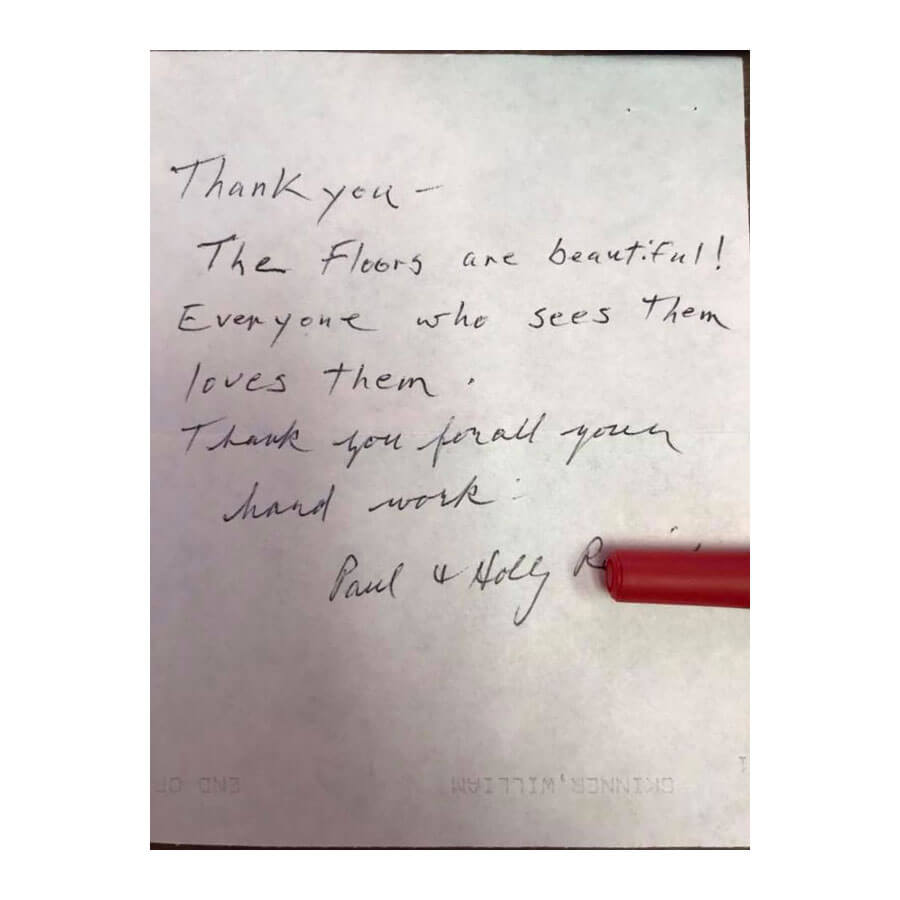 Thank you –
The Floors are beautiful!
Everyone who sees them
loves them.
Thank you for all your
hard work.
Paul & Holly
SKINNER,WILLIAM
END OF